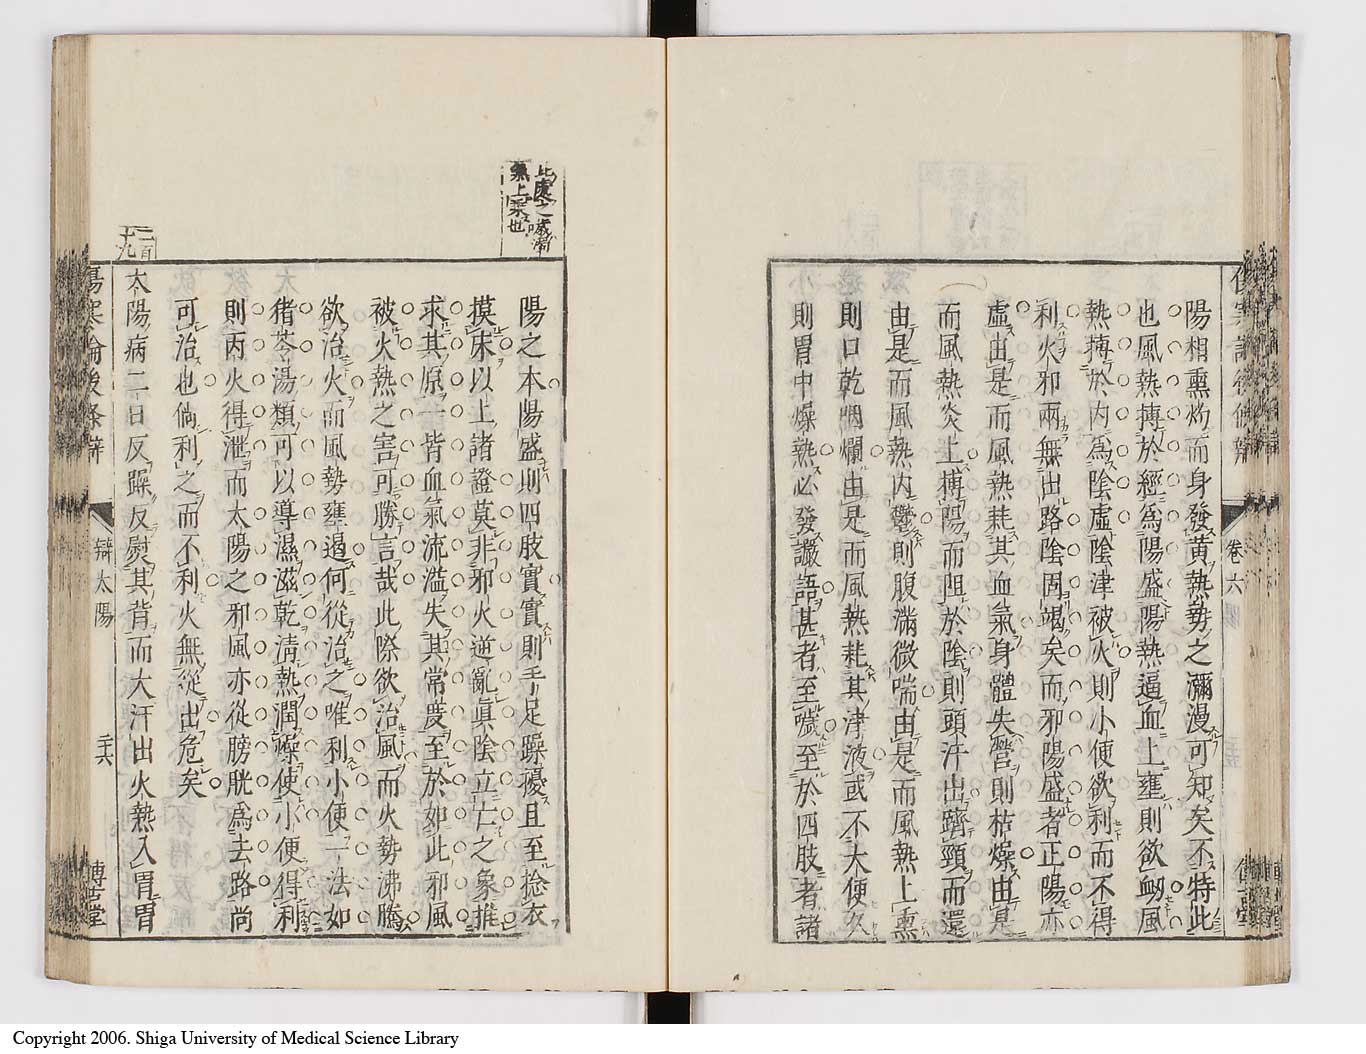 陽相熏灼而身發黃熱勢之瀰漫可知矣不特此
也風熱搏於經爲陽盛陽熱逼血上壅則欲衂風
熱搏於内爲陰虛陰津被火則小便欲利而不得
利火邪兩無出路陰固竭矣而邪陽盛者正陽亦
虛由是而風熱耗其血氣身體失營則枯燥由是
而風熱炎上搏陽而阻於陰則頭汗出躋頸而還
由是而風熱内鬱則腹滿微喘由是而風熱上熏
則口乾咽爛由是而風熱耗其津液或不大便久
則胃中燥熱必發讝語甚者至噦至於四肢者諸
卷六
此處之噦滯
氣上乘也
陽之本陽盛則四肢實實則手足躁擾且至捻衣
摸床以上諸證莫非邪火逆亂真陰立亡之象推
求其原一皆血氣流溢失其常度至於如此邪風
被火熱之害可勝言哉此際欲治風而火勢沸騰
欲治火而風勢壅遏何從治之唯利小便一法如
猪苓湯類可以導濕滋乾淸熱潤燥使小便得利
則丙火得泄而太陽之邪風亦從膀胱爲去路尚
可治也倘利之而不利火無從出危矣
二百
十九
太陽病二日反躁反熨其背而大汗出火熱入胃胃
傷寒論後條辯
辯太陽
二十六
博古堂
Copyright 2006. Shiga University of Medical Science Library